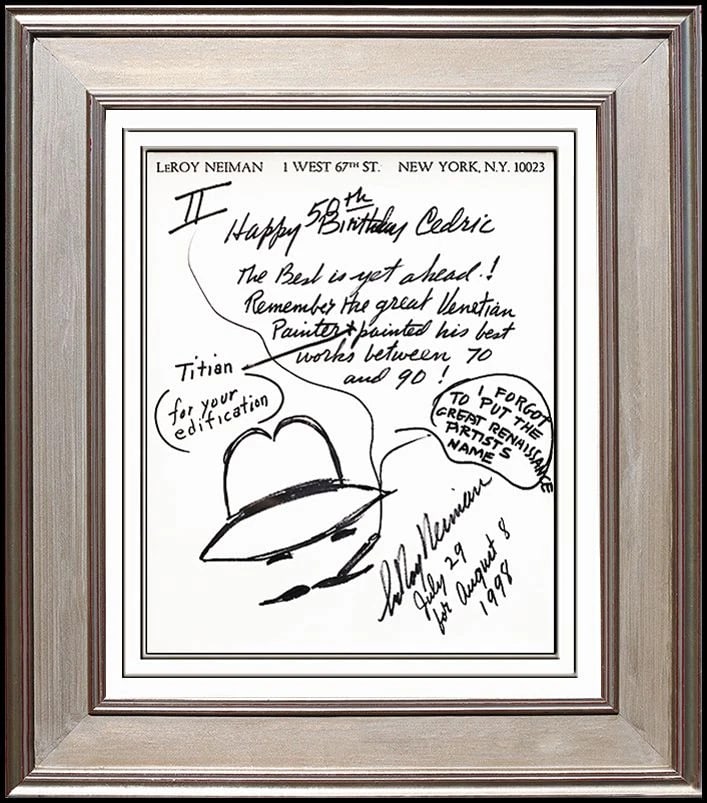 LEROY NEIMAN 1 WEST 67TH ST. NEW YORK, N.Y. 10023
II
Happy 50th Birthday Cedric
The Best is yet ahead!
Remember the great Venetian
Painter * painted his best
works between 70
and 90!
Titian
for your
edification
I FORGOT
TO PUT THE
GREAT RENAISSANCE
ARTISTS
NAME
LeRoy Neiman
July 29
for August 8
1998